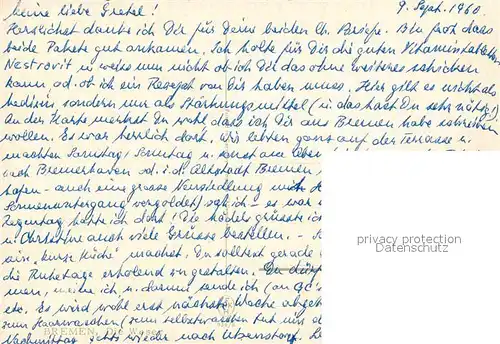 9. Sept. 1960.
Meine liebe Gretel!
Herzlichst danke ich Dir für Deine beiden lb. Briefe. Bin froh dass
beide Pakete gut ankamen. Ich hätte für Dich die guten Vitamintabletten
Nestrovit u. weiss nun nicht ob ich Dir das ohne weiteres schicken
kann od. ob ich ein Rezept von Dir haben muss. Hier gilt es nicht als
Medizin sondern nur als Stärkungsmittel (u. das hast Du sehr nötig).
An der Karte merkst Du wohl dass ich Dir aus Bremen habe schreiben
wollen. Es war herrlich dort, wir lebten ganz auf der Terrasse u.
machten Samstag, Sonntag u. sonst am Aben
nach Bremerhaven od. i. d. Altstadt Bremen
hafen - auch eine grosse Neusiedlung
Sonnenuntergang vergoldet) sah ich - es war
Regentag hatte ich dort! Die Mädels grüsste ic
u. Christine auch viele Grüsse bestellen. -
ein "kurze Küche" machst. Du solltest gerade
die Ruhetage erholend gestalten.
men, meine ich u. darum sende ich (an
etc. Es wird wohl erst nächste Woche abge
zum Haarwaschen (zum selbstwaschen tut mir
Nachmittag gehts wieder nach
BREMEN, Die Weser
privat copyright
AnsichtskartenVersand